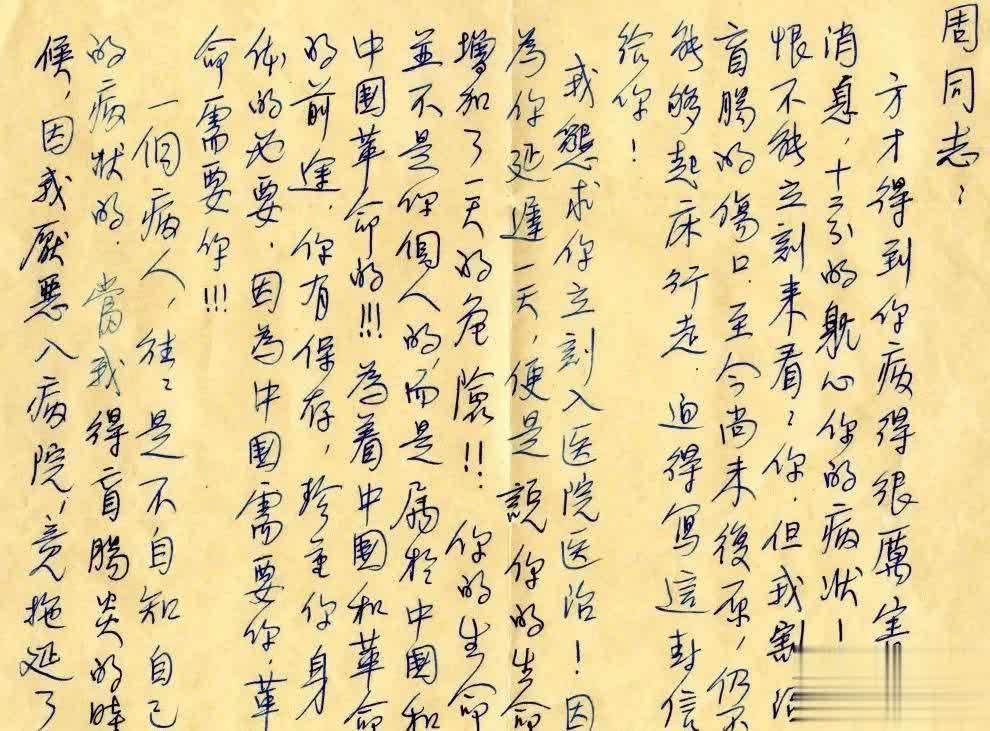 周同志：
方才得到你病得很厲害
消息，十二分的躭心你的病狀！
恨不能立刻来看々你．但我割治
盲腸的傷口．至今尚未復原，仍不
能够起床行走．迫得写這封信
给你！
我懇求你立刻入医院医治！因
為你延遲一天，便是說你的生命
增加了一天的危險!!．你的生命
並不是你個人的，而是属於中國和
中國革命的!!!為着中國和革命
的前途．你有保存，珍重你身
体的必要．因為中国需要你．革
命需要你!!!
一個病人，往々是不自知自己
的病狀的．當我得盲腸炎的時
候，因我厭惡入病院，竟拖延了